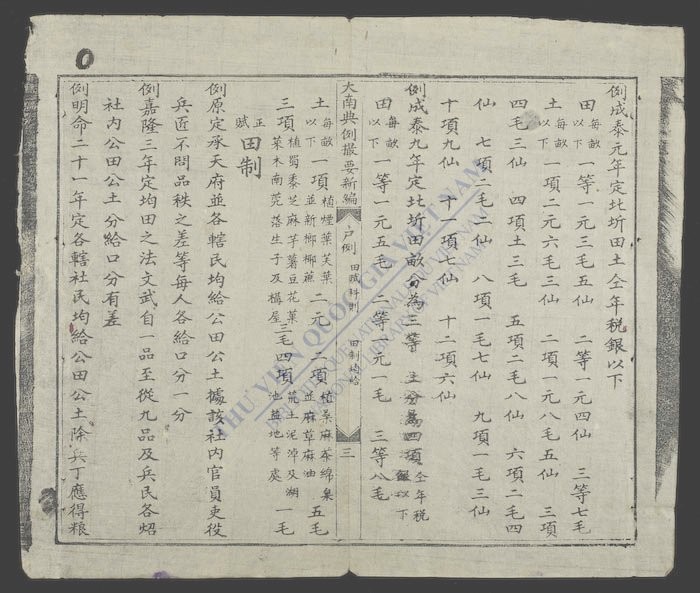 例成泰元年定北圻田土仝年稅銀以下
田每畝以下一等一元三毛五仙 二等一元四仙 三等七毛
土每畝以下一項二元六毛三仙 二項一元八毛五仙 三項
四毛三仙 四項土三毛 五項二毛八仙 六項二毛四
仙 七項二毛二仙 八項一毛七仙 九項一毛三仙
十項九仙 十一項七仙 十二項六仙
例成泰九年定北圻田畝分為三等 土分為四項仝年稅銀以下
田每畝以下一等一元五毛 二等一元一毛 三等八毛
大南典例撮要新編 戶例 田賦科則 田制均給 三
土每畝以下一項植煙葉芙葉並新榔椰蔗二元 二項植桑麻茶綿棗並麻草麻油五毛
三項植蜀黍芝麻芋薯豆花菓菜木南荒落生子及構屋三毛四項荒土泥淖及湖池鹽地等處一毛
正賦 田制
例原定承天府並各轄民均給公田公土據該社內官員吏役
兵匠不問品秩之差等每人各給口分一分
例嘉隆三年定均田之法文武自一品至從九品及兵民各炤
社內公田公土分給口分有差
例明命二十一年定各轄社民均給公田公土除兵丁應得粮
THƯ VIỆN QUỐC GIA VIỆT NAM